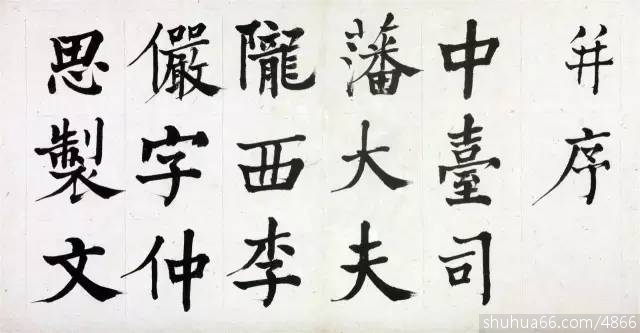 并序
中臺司
藩大夫
隴西李
儼字仲
思製文
shuhua66.com/4866